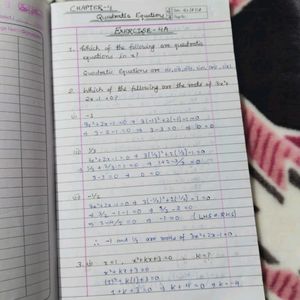 CHAPTER-4
Quadratic Equations
EXERCISE-4A
1. Which of the following are quadratic
equations in x?
Quadratic Equations are
2. Which of the following are the roots of 3x²+
2x-1=0?
i) -1
3x²+2x-1=0 → 3(-1)²+2(-1)-1=0
→ 3-2-1=0 → 3-3=0 → 0=0
ii) 1/3
3x²+2x-1=0 → 3(1/3)²+2(1/3)-1=0
3-3=0 → 0=0
iii) -1/2
3x²+2x-1=0 → 3(-1/2)²+2(-1/2)-1=0
→ 3/4-1-1=0
→ -1=0 (LHS≠RHS)
∴ -1 and 1/3 are roots of 3x²+2x-1=0.
3. i) x=1, x²+kx+3=0, k=?
x²+kx+3=0
(1)²+k(1)+3=0
1+k+3=0 → k+4=0 → k=-4